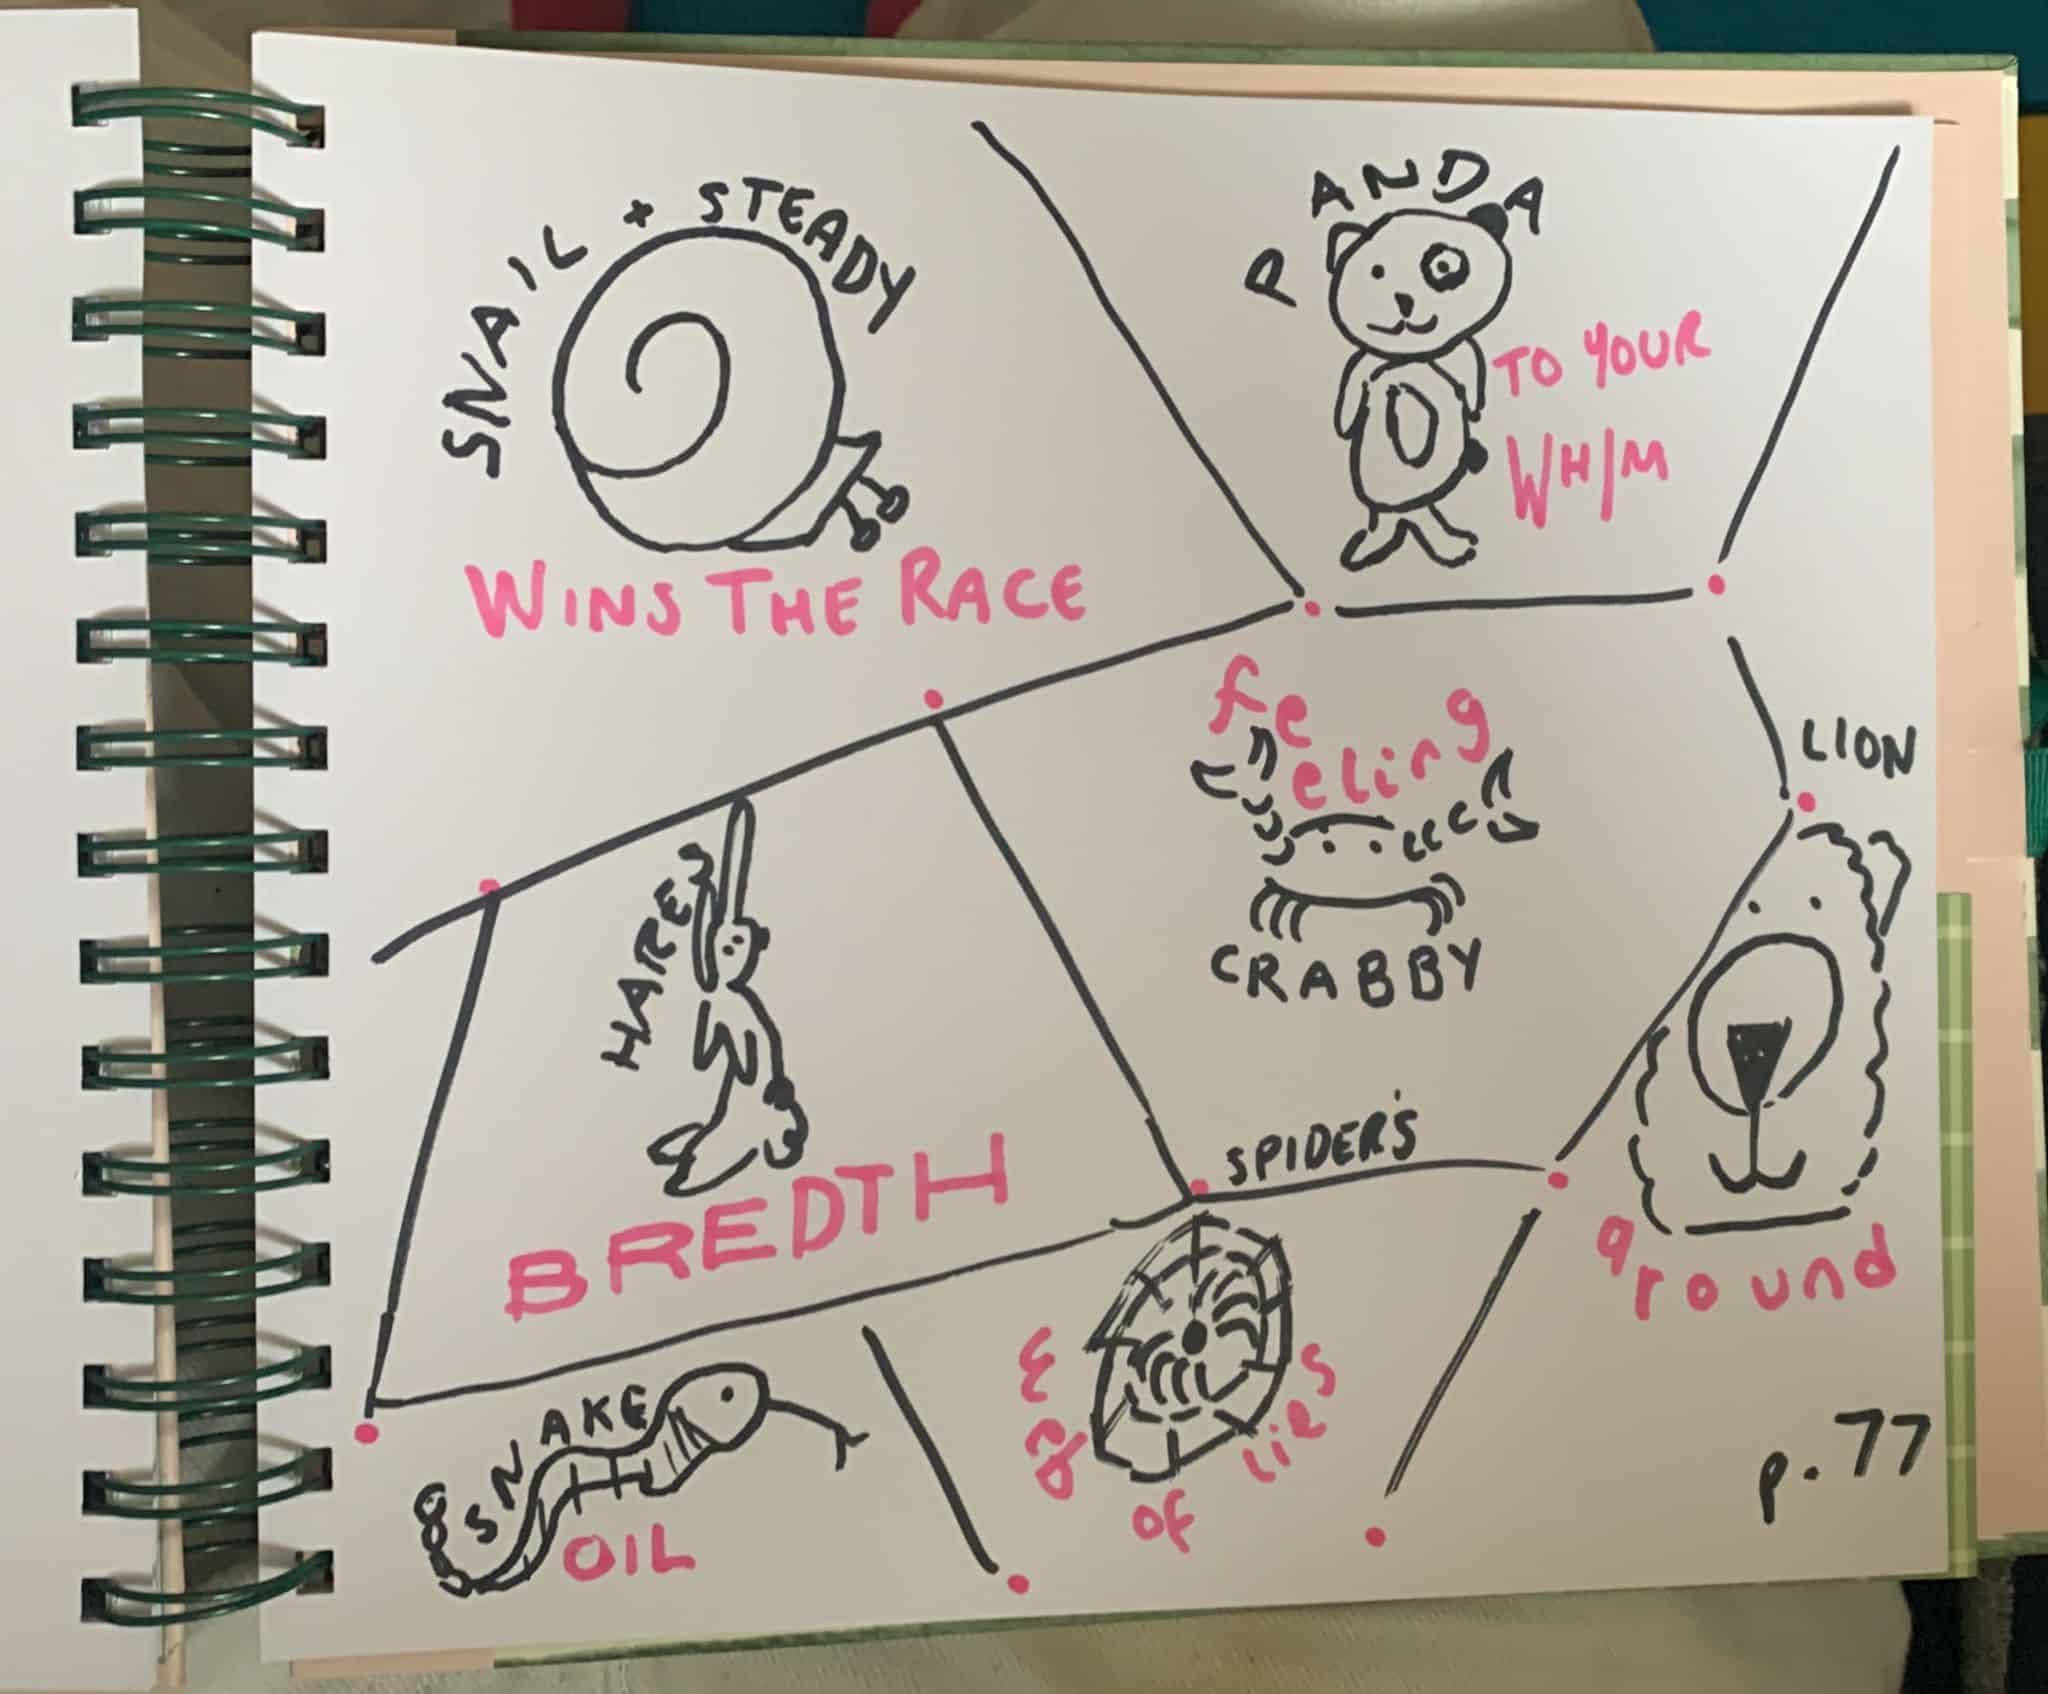 SNAIL + STEADY
WINS THE RACE
PANDA
TO YOUR
WHIM
HARES
BREDTH
feeling
CRABBY
LION
around
SNAKE
OIL
SPIDER'S
of lies
p. 77